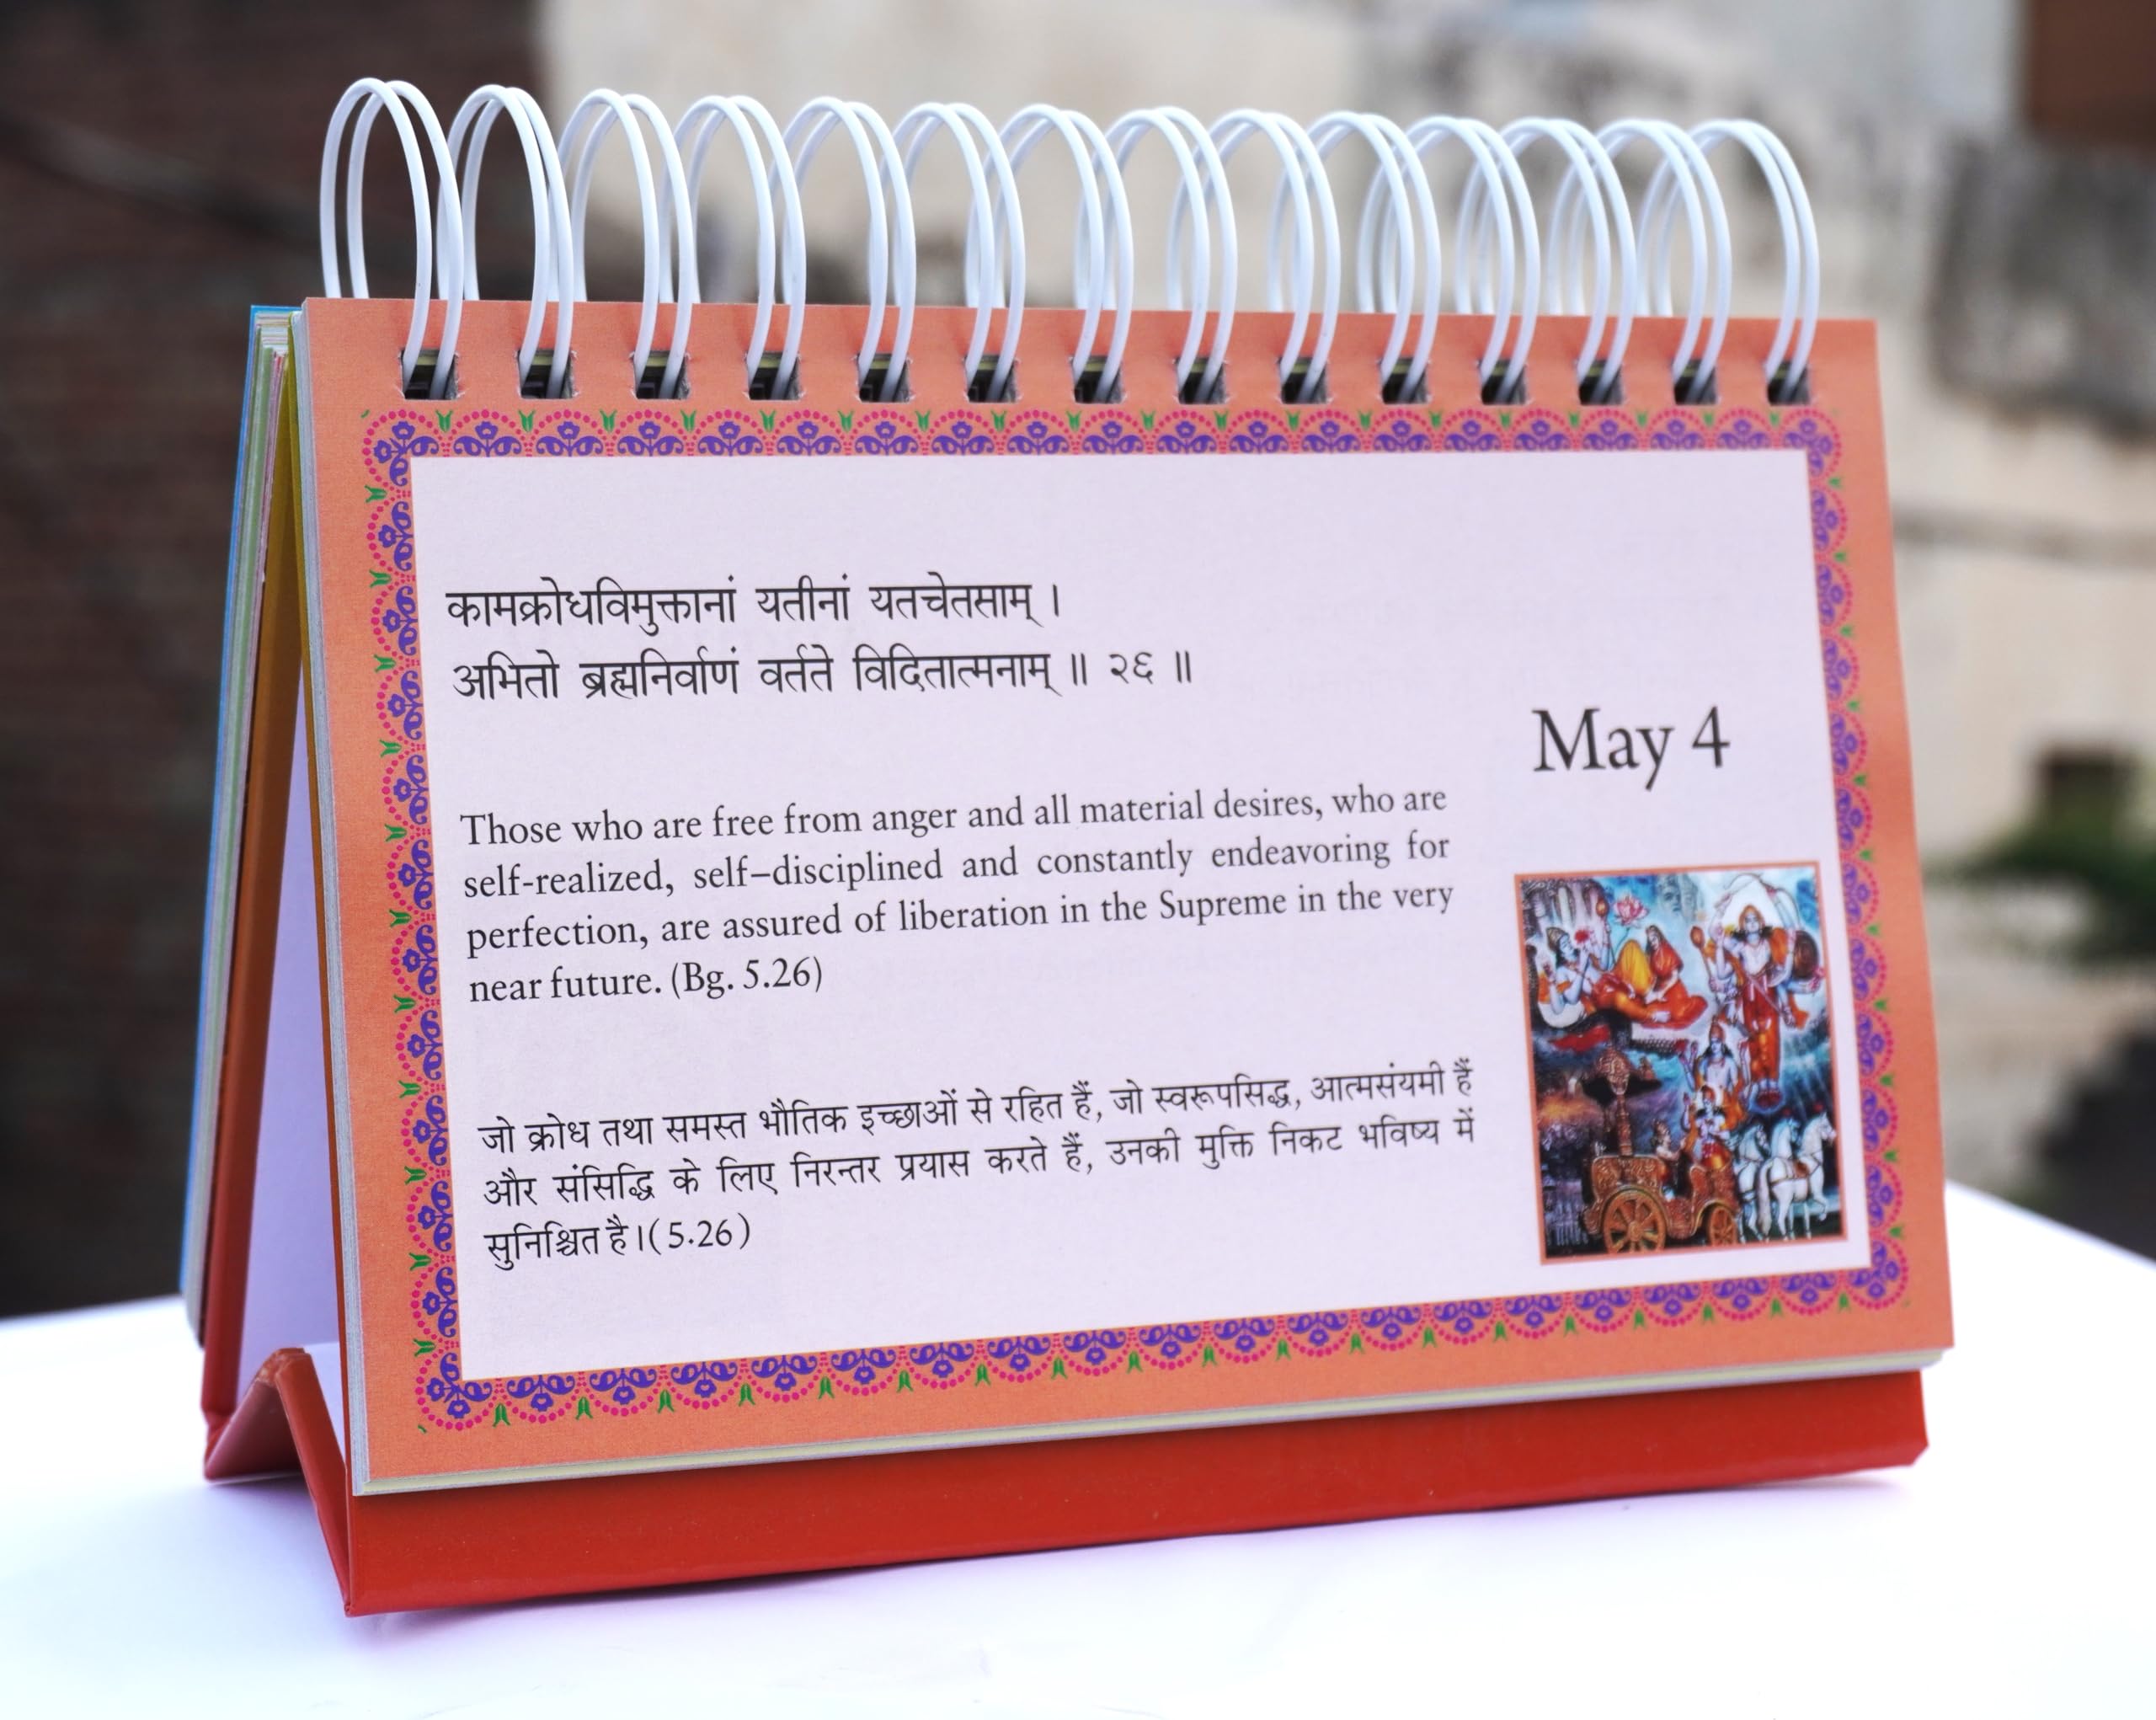 कामक्रोधविमुक्तानां यतीनां यतचेतसाम् ।
अभितो ब्रह्मनिर्वाणं वर्तते विदितात्मनाम् ॥ २६ ॥
May 4
Those who are free from anger and all material desires, who are
self-realized, self–disciplined and constantly endeavoring for
perfection, are assured of liberation in the Supreme in the very
near future. (Bg. 5.26)
जो क्रोध तथा समस्त भौतिक इच्छाओं से रहित हैं, जो स्वरूपसिद्ध, आत्मसंयमी हैं
और संसिद्धि के लिए निरन्तर प्रयास करते हैं, उनकी मुक्ति निकट भविष्य में
सुनिश्चित है।(5.26)